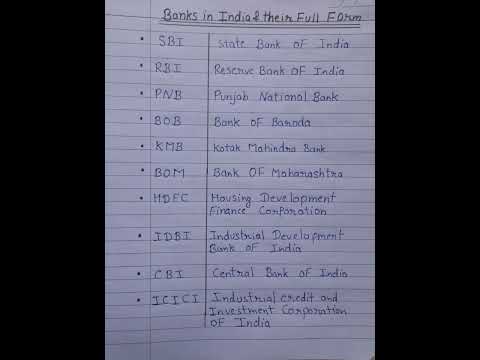 Banks in India & their Full Form
• SBI State Bank OF India
• RBI Reserve Bank OF India
• PNB Punjab National Bank
• BOB Bank OF Baroda
• KMB Kotak Mahindra Bank
• BOM Bank OF Maharashtra
• HDFC Housing Development
Finance Corporation
• IDBI Industrial Development
Bank OF India
• CBI Central Bank OF India
• ICICI Industrial credit and
Investment Corporation
OF India